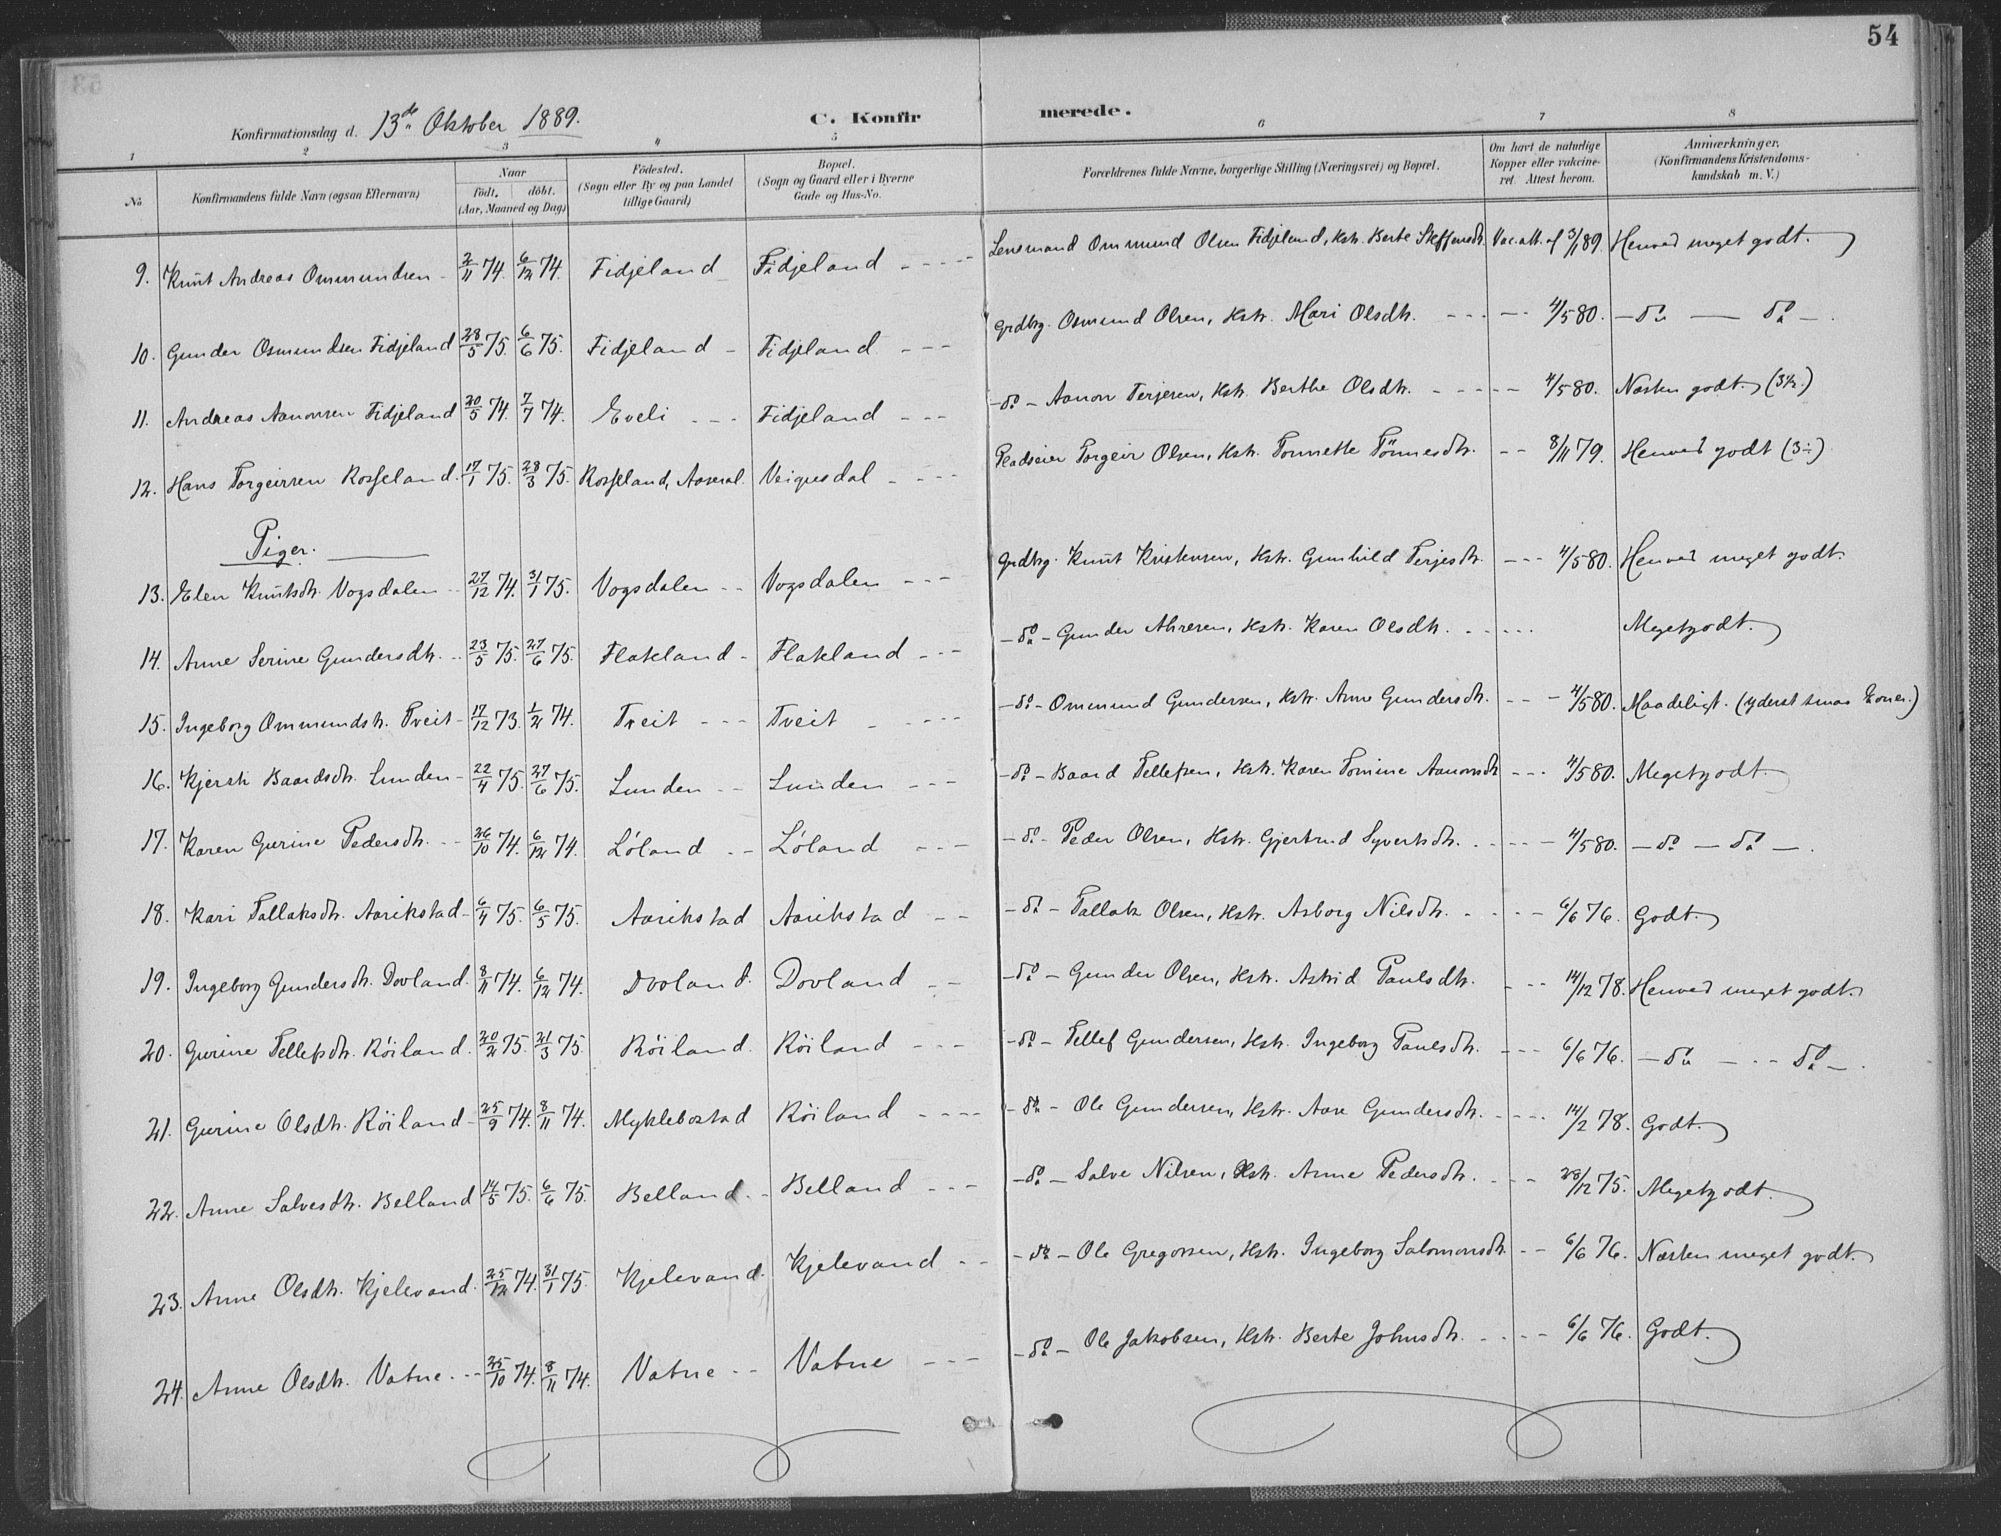 54
Konfirmationsdag d. 13de Oktober 1889.
C. Konfirmerede.
1 2 3 4 5 6 7 8
No
Konfirmandens fulde Navn (ogsaa Efternavn)
Naar
födt, döbt.
(Aar, Maaned og Dag)
Födested.
(Sogn eller By og paa Landet
tillige Gaard)
Bopæl.
(Sogn og Gaard eller i Byerne
Gade og Hus-No.
Forældrenes fulde Navne, borgerlige Stilling (Næringsvei) og Bopæl.
Om havt de naturlige
Kopper eller vakcine-
ret. Attest herom.
Anmærkninger.
(Konfirmandens Kristendoms-
kundskab m. V.)
9. Knut Andreas Ommundsen - 2/11 74. 6/12 74. Fidjeland - Fidjeland - - - - Lensmand Ommund Olsen Fidjeland, Hstr. Berte Steffensdtr. Vac. att. af 3/1 89. Henved meget godt.
10. Gunder Osmundsen Fidjeland 28/5 75. 6/6 75. Fidjeland - Fidjeland - - - Grdbrg. Osmund Olsen, Hstr. Mari Olsdtr. - - - - 4/5 80. - do - do -.
11. Andreas Aanonsen Fidjeland 20/5 74. 7/7 74. Eveli - - - Fidjeland - - - - do - Aanon Terjesen, Hstr. Berthe Olsdtr. - - - - - 4/5 80. Næsten godt. (3½.)
12. Hans Torgeirsen Rosseland. 17/1 75. 28/3 75. Rosseland, Aaseral. Veigusdal - - - - Pladseier Torgeir Olsen, Hstr. Tonnette Tönnesdtr. - - 8/11 79. Henved godt (3÷)
Piger.
13. Elen Knutsdtr. Vogsdalen - - 27/12 74. 31/1 75. Vogsdalen - - Vogsdalen - - - Grdbrg. Knut Kristensen, Hstr. Gunhild Terjesdtr. - - - 4/5 80. Henved meget godt.
14. Anne Serine Gundersdtr. - - 23/5 75. 27/6 75. Flakland - Flakland - - - - do - Gunder Ahresen, Hstr. Karen Olsdtr. - - - - - Megetgodt.
15. Ingeborg Ommundsdtr. Tveit - 17/12 73. 1/2 74. Tveit - - - Tveit - - - - - do - Ommund Gundersen, Hstr. Anne Gundersdtr. - - - 4/5 80. Maadeligt. (yderst smaa Evner.)
16. Kjersti Baardsdtr. Lunden - 22/4 75. 27/6 75. Lunden - - Lunden - - - - do - Baard Tellefsen, Hstr. Karen Tomine Aanonsdtr. - - - 4/5 80. Megetgodt.
17. Karen Gurine Pedersdtr. - - 26/10 74. 6/12 74. Lóland - - Lóland - - - - do - Peder Olsen, Hstr. Gjertrud Syvertsdtr. - - - - - 4/5 80. - do - do -.
18. Kari Tallaksdtr. Aarikstad - 6/4 75. 6/5 75. Aarikstad Aarikstad - - - do - Tallak Olsen, Hstr. Asborg Nilsdtr. - - - - 6/6 76. Godt.
19. Ingeborg Gundersdtr. Dovland. 8/11 74. 6/12 74. Dovland. Dovland - - - do - Gunder Olsen, Hstr. Astrid Paulsdtr. - - - 14/12 78. Henved meget godt.
20. Gurine Tellefsdtr. Röiland. 20/2 75. 21/3 75. Röiland. Röiland - - - - do - Tellef Gundersen, Hstr. Ingeborg Paulsdtr. - - - 6/6 76. - do - - - do -.
21. Gurine Olsdtr. Röiland - 25/9 74. 8/11 74. Myklebostad Röiland - - - - - do - Ole Gundersen, Hstr. Aase Gundersdtr. - - - - 14/2 78. Godt.
22. Anne Salvesdtr. Belland 14/5 75. 6/6 75. Belland. - Belland - - - - do - Salve Nilsen, Hstr. Anne Pedersdtr. - - - 28/12 75. Megetgodt.
23. Anne Olsdtr. Kjelevand. 25/12 74. 31/1 75. Kjelevand. Kjelevand - - - do - Ole Gregorsen, Hstr. Ingeborg Salomonsdtr. - - 6/6 76. Næsten meget godt.
24. Anne Olsdtr. Vatne. - - 25/10 74. 8/11 74. Vatne - - Vatne - - - - do - Ole Jakobsen, Hstr. Berte Johnsdtr. - - - - 6/6 76. Godt.